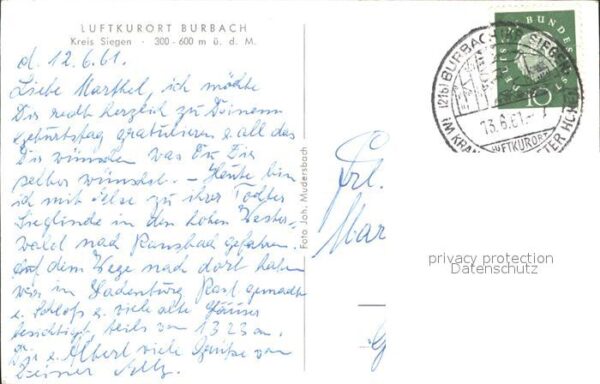 LUFTKURORT BURBACH
Kreis Siegen · 300-600 m ü. d. M.
d. 12.6.61.
Liebe Marthel, ich möchte
Dir recht herzlich zu Deinem
Geburtstag gratulieren u. all das
Dir wünschen was Du Dir
selber wünschst. – Heute bin
ich mit Else zu ihrer Tochter
Sieglinde in den hohen Wester-
wald nach Ransbach gefahren.
Auf dem Wege nach dort haben
wir in Hadenburg Rast gemacht
u. Schloß u. viele alte Häuser
besichtigt teils von 1323 an.
Dir u. Albert viele Grüße von
Deiner
Foto Joh. Mudersbach
Frl.
Mar
(21b) BURBACH SIEGEN
IM KRAN TER HÖHEN
13.6.61.
LUFTKURORT
DEUTSCHE BUNDESPOST
10
privacy protection
Datenschutz